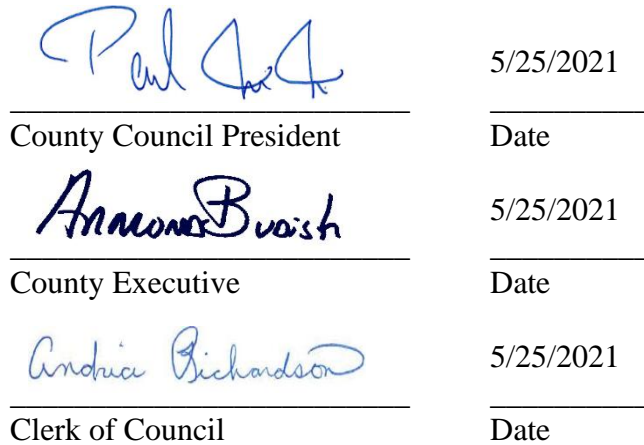 Paul 5/25/2021
County Council President Date
Armond Budish 5/25/2021
County Executive Date
Andria Richardson 5/25/2021
Clerk of Council Date